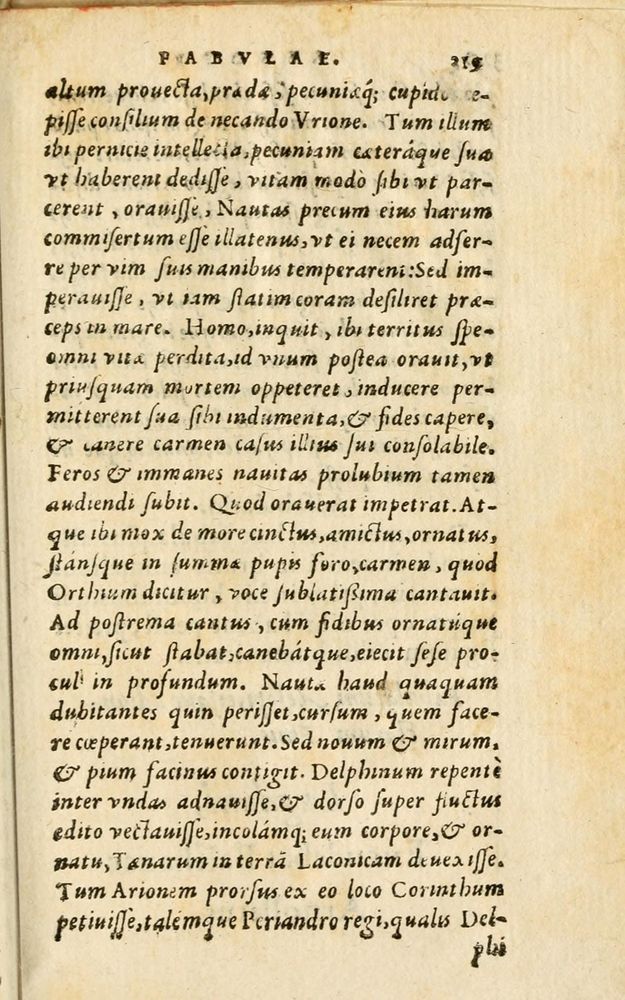 FABVLAE. 219
altum prouecta, prædæ, pecuniæq́; cupidos ce-
pisse consilium de necando Vrione. Tum illum
ibi pernicie intellecta, pecuniam cæteráque sua
vt haberent dedisse, vitam modò sibi vt par-
cerent, orauisse, Nautas precum eius harum
commisertum esse illatenus, vt ei necem adfer-
re per vim suis manibus temperarent: Sed im-
perauisse, vt iam statim coram desiliret præ-
ceps in mare. Homo, inquit, ibi territus spe-
omni vitæ perdita, id vnum postea orauit, vt
priusquam mortem oppeteret, inducere per-
mitterent sua sibi indumenta, & fides capere,
& canere carmen casus illius sui consolabile.
Feros & immanes nauitas prolubium tamen
audiendi subit. Quod orauerat impetrat. At-
que ibi mox de more cinctus, amictus, ornatus,
stánsque in summæ pupis foro, carmen, quod
Orthium dicitur, voce sublatißima cantauit.
Ad postrema cantus, cum fidibus ornatúque
omni, sicut stabat, canebátque, eiecit sese pro-
cul in profundum. Nautæ haud quaquam
dubitantes quin perisset, cursum, quem face-
re cœperant, tenuerunt. Sed nouum & mirum,
& pium facinus contigit. Delphinum repentè
inter vndas adnauisse, & dorso super fluctus
edito vectauisse, incolúmq; eum corpore, & or-
natu, Tænarum in terrã Laconicam deuexisse.
Tum Arionem prorsus ex eo loco Corinthum
petiuisse, talemque Periandro regi, qualis Del-
phi